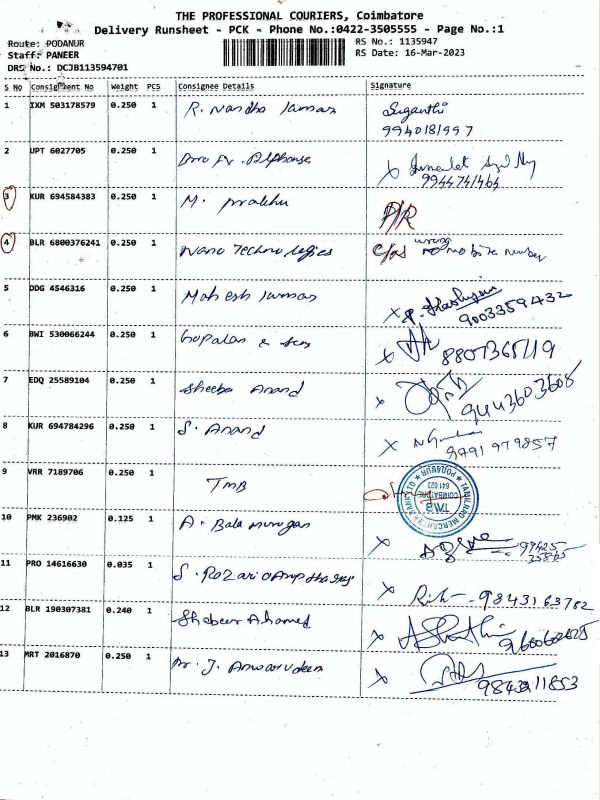 THE PROFESSIONAL COURIERS, Coimbatore
Delivery Runsheet - PCK - Phone No.:0422-3505555 - Page No.:1
Route: PODANUR
Staff: PANEER
DRS No.: DCJB113594701
RS No.: 1135947
RS Date: 16-Mar-2023
S No Consignment No Weight PCS Consignee Details Signature
1 IXM 503178579 0.250 1 R. Nandha kumar Suganthi
9940181997
2 UPT 6027705 0.250 1 Alphonse
9944741464
3 KUR 694584383 0.250 1 M. Prabhu
4 BLR 6800376241 0.250 1 Nano Technologies wrong
mobile number
5 DDG 4546316 0.250 1 Mahesh kumar
9003359432
6 BWI 530066244 0.250 1 Gopalan & Sons
8807365119
7 EDQ 25589104 0.250 1 Sheeba Anand
9443603608
8 KUR 694784296 0.250 1 S. Anand
9791979857
9 VRR 7189706 0.250 1 TMB
TAMILNAD MERCANTILE BANK LTD
TMB
COIMBATORE
641 023
PODANUR
10 PMK 236902 0.125 1 A. Bala murugan
99425
35865
11 PRO 14616630 0.035 1 S. Rozario
9843163782
12 BLR 190307381 0.240 1 Shabeer Ahamed
9600602625
13 MRT 2016870 0.250 1 Mr. J. Anwarudeen
9843211853